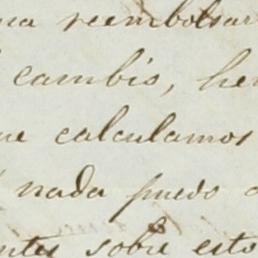 na reembolsar
cambio, he
ue calculamos
nada puedo
ntes sobre esto